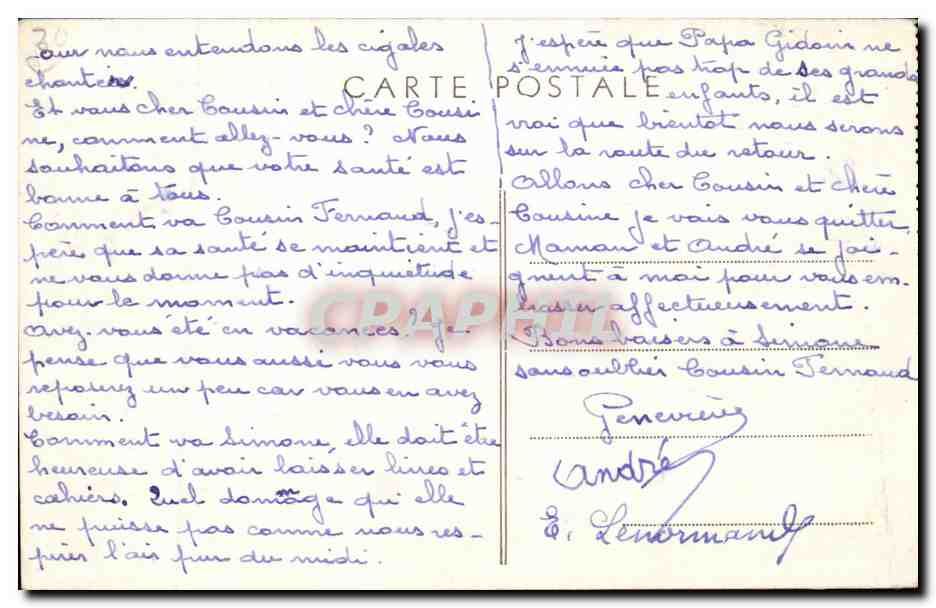 jour nous entendons les cigales
chanter.
Et vous cher Cousin et chère Cousi
ne, comment allez-vous? Nous
souhaitons que votre santé est
bonne à tous.
Comment va Cousin Fernand, j'es-
père que sa santé se maintient et
ne vous donne pas d'inquiétude
pour le moment.
Avez-vous été en vacances? Je
pense que vous aussi vous vous
reposerez un peu car vous en avez
besoin.
Comment va Simone, elle doit être
heureuse d'avoir laisser livres et
cahiers. Quel dommage qui elle
ne puisse pas comme nous res-
pirer l'air pur du midi.
CARTE POSTALE
J'espère que Papa Gidoin ne
s'ennuie pas trop de ses grands
enfants, il est
vrai que bientot nous serons
sur la route du retour.
Allons cher Cousin et chère
Cousine je vais vous quitter,
Maman et André se joi-
gnent à moi pour vous em-
brasser affectueusement.
Bons baisers à Simone
sans oublier Cousin Fernand
Geneviève
André
E. Lenormand
CPAPHIL